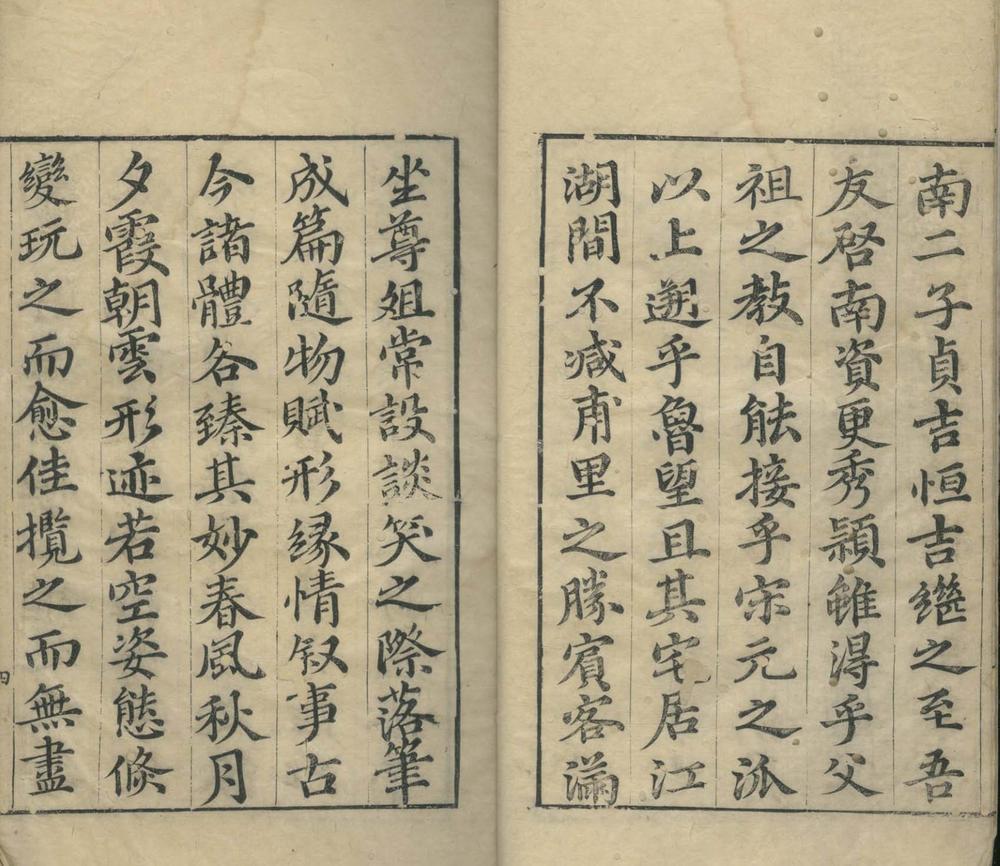 南二子貞吉恒吉繼之至吾
友啓南資更秀頴雖得乎父
祖之教自能接乎宋元之派
以上遡乎魯望且其宅居江
湖間不减甫里之勝賓客滿
坐尊俎常設談笑之際落筆
成篇隨物賦形縁情叙事古
今諸體各臻其妙春風秋月
夕霞朝雲形迹若空姿態倐
變玩之而愈佳攬之而無盡
四